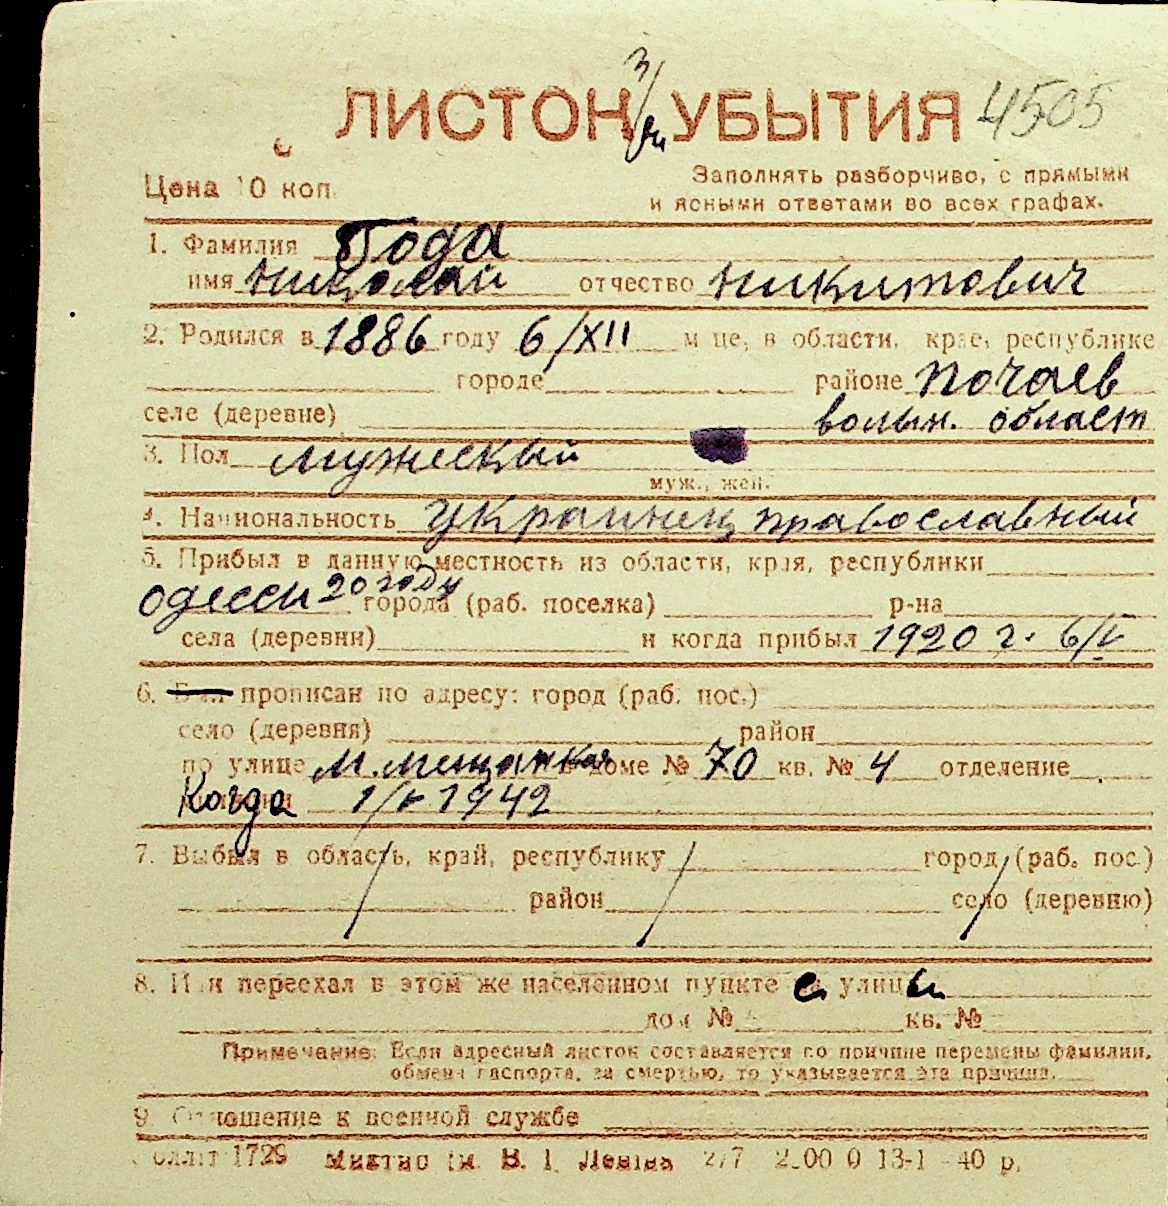 ЛИСТОК УБЫТИЯ 4505
Цена 10 коп.
Заполнять разборчиво, с прямыми
и ясными ответами во всех графах.
1. Фамилия Года
имя Николай отчество Никитович
2. Родился в 1886 году 6/XII м-це, в области, крае, республике
городе районе Почаев
селе (деревне) волын. област
3. Пол мужеский
муж., жен.
4. Национальность Украинец православный
5. Прибыл в данную местность из области, края, республики
Одесси 20 году города (раб. поселка) р-на
села (деревни) и когда прибыл 1920 г. 6/V
6. прописан по адресу: город (раб. пос.)
село (деревня) район
по улице М. Мещанкая доме № 70 кв. № 4 отделение
Когда 1/V 1942
7. Выбыл в область, край, республику город (раб. пос.)
район село (деревню)
8. Или переехал в этом же населенном пункте с улицы
дом № кв. №
Примечание: Если адресный листок составляется по причине перемены фамилии,
обмена паспорта, за смертью, то указывается эта причина.
9. Отношение к военной службе
1729 Миктип ім. В. І. Леніна 2/7 13-1 40 р.